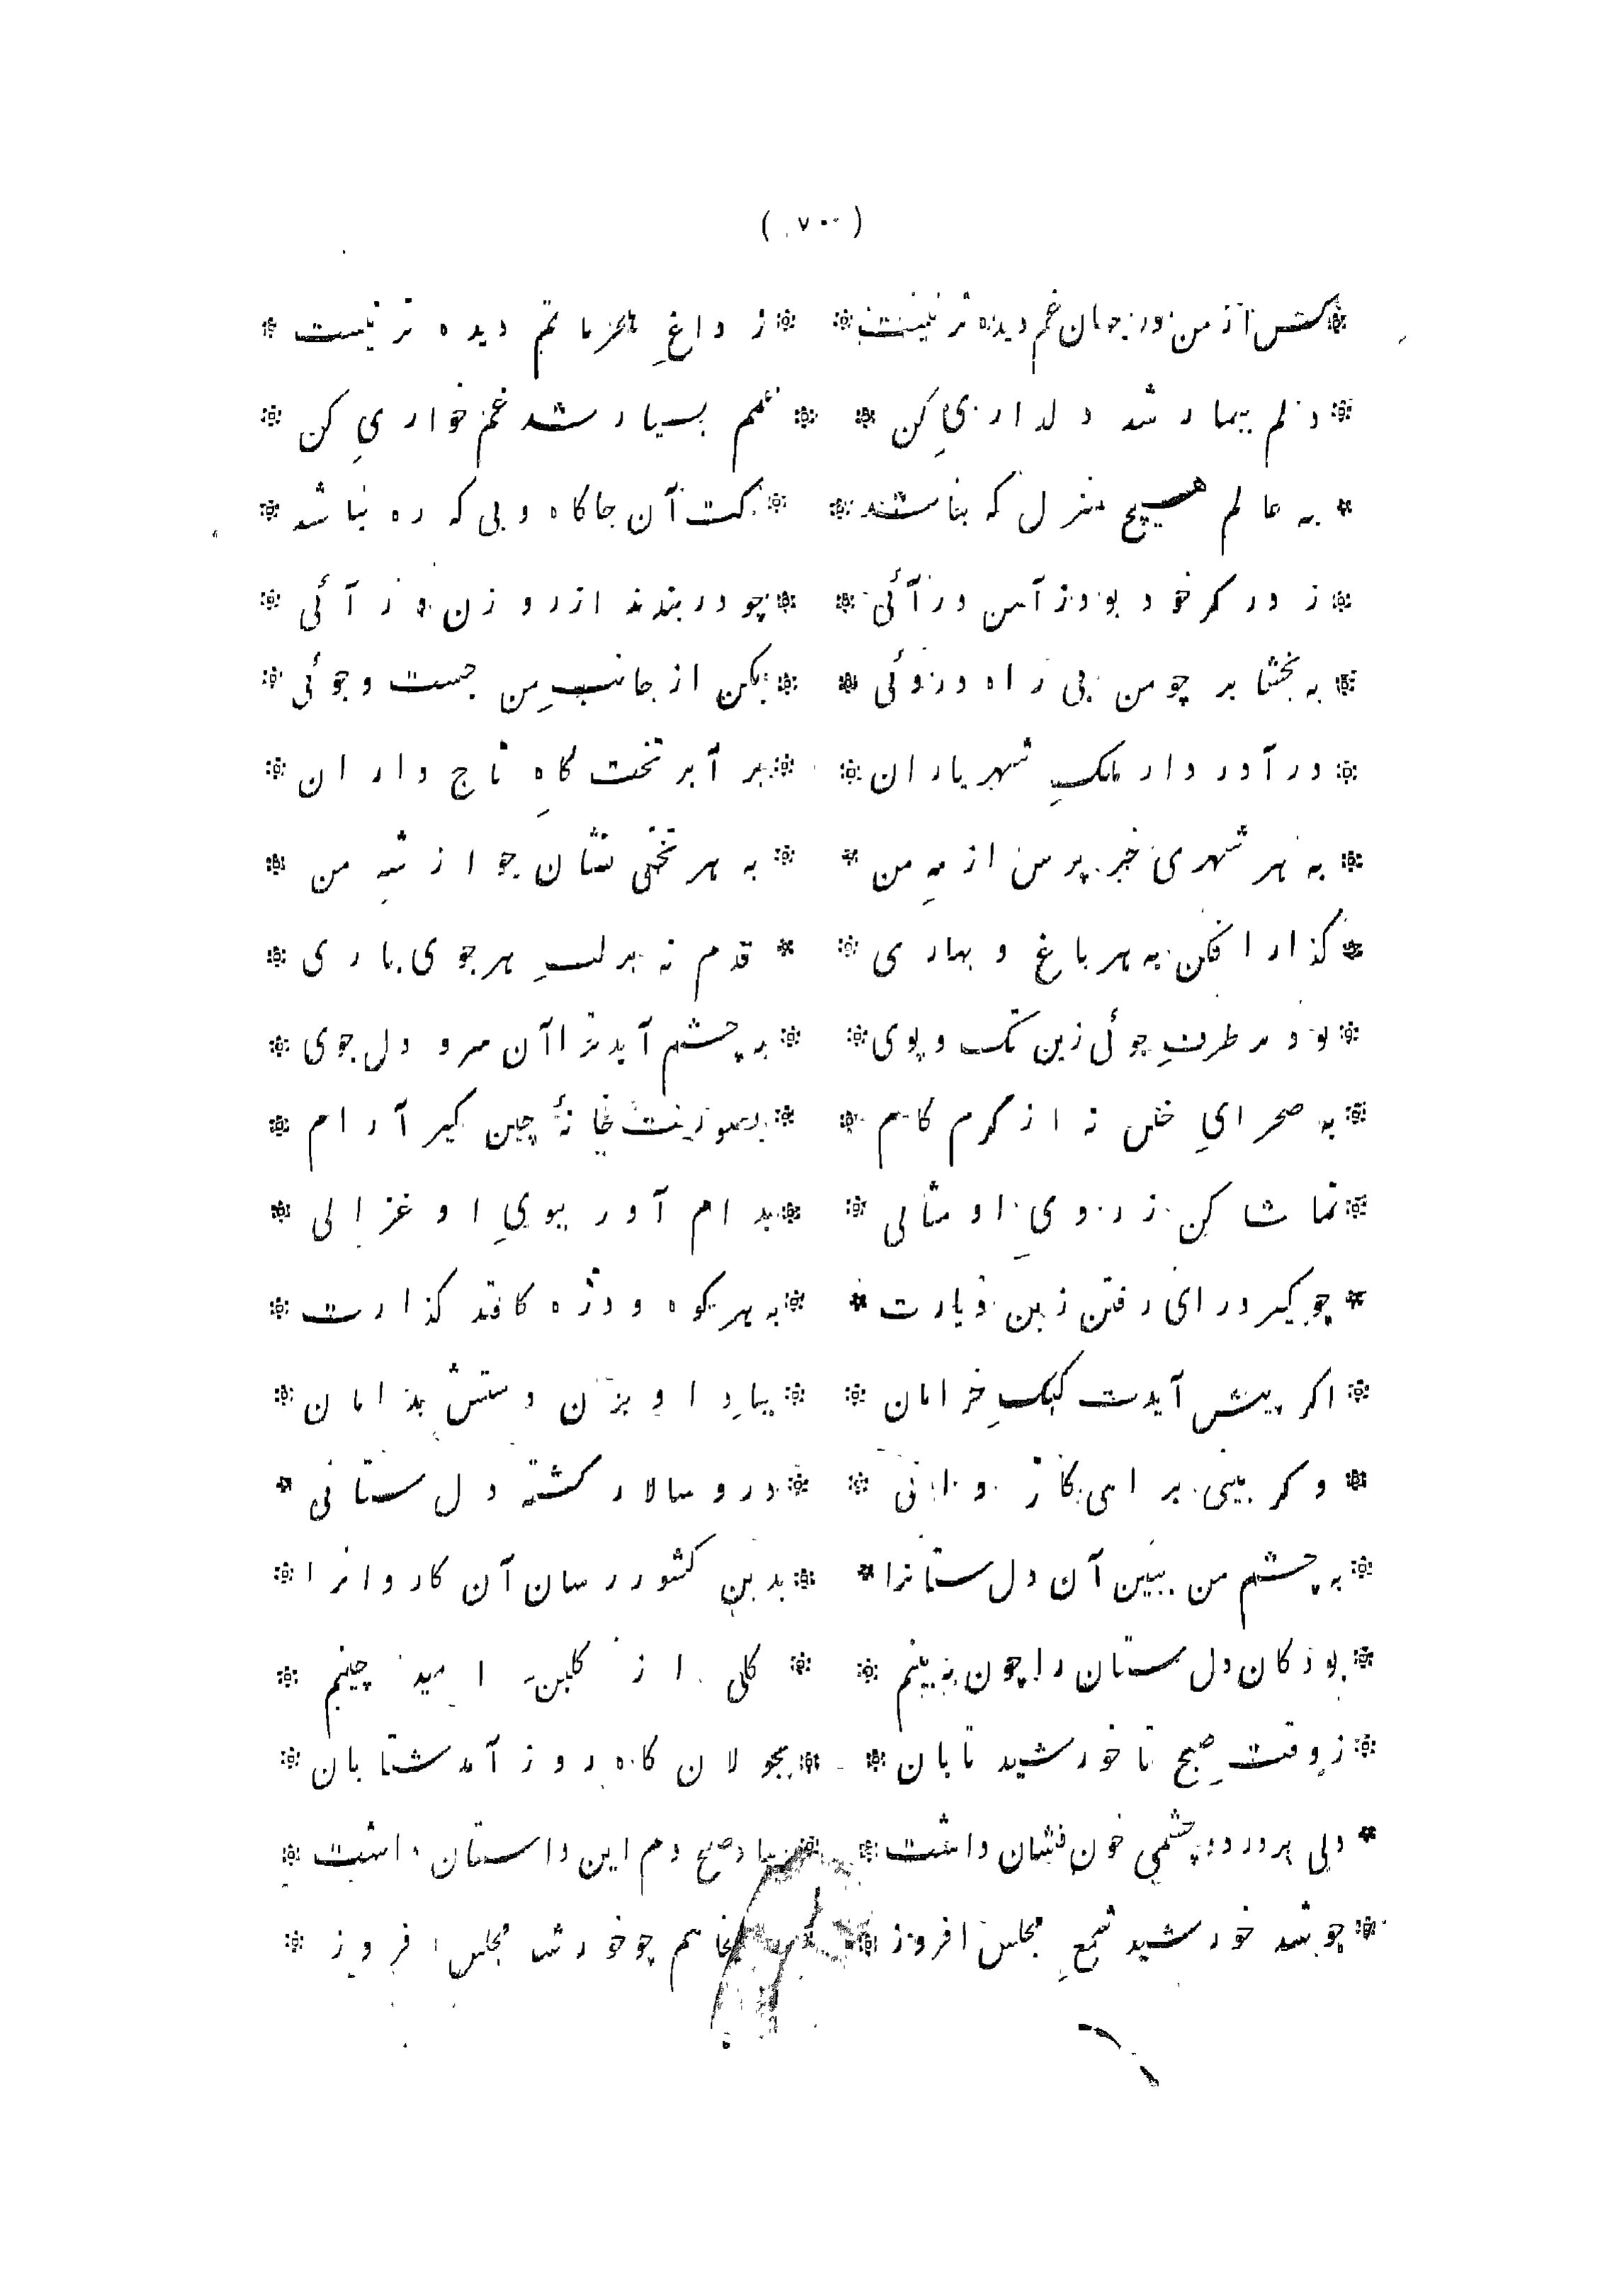 ( ۷۰ )
* کس از من در جهان غم دیده تر نیست * * ز داغِ هجر ماتم دیده تر نیست *
* دلم بیمار شد دلداریِ کن * * غمم بسیار شد غم خواریِ کن *
* به عالم هیچ منزل که بناشد * * کت آن جا کاه و بی که ره نباشد *
* ز در کر خود بود ز آهن در آئی * * چو در بندند از روزن در آئی *
* به بخشا بر چو من بی راه و روئی * * بکن از جانبِ من جست وجوئی *
* در آ در دار ملکِ شهریاران * * بر آ بر تخت کاهِ تاج داران *
* به هر شهری خبر پرس از مهِ من * * به هر تختی نشان جو از شهِ من *
* کذار افکن به هر باغ و بهاری * * قدم نه بر لبِ هر جوی باری *
* بود بر طرفِ جوئی زین تک و پوی * * به چشم آید ترا آن سرو دل جوی *
* به صحرایِ ختن نه از کرم کام * * بصورت خانهٔ چین کیر آرام *
* تماشا کن ز رویِ او مثالی * * بدام آور ببویِ او غزالی *
* چو کیرد رای رفتن زین دیارت * * به هر کوه و دژه کافتد کذارت *
* اکر پیش آیدت کبکِ خرامان * * بیاد او بزن دستش بدامان *
* و کر بینی براهی کاروانی * * درو سالار کشته دل ستانی *
* به چشم من ببین آن دل ستانرا * * بدین کشور رسان آن کاروانرا *
* بود کان دل ستان را چون به بینم * * کلی از کلبن امید چینم *
* ز وقتِ صبح تا خورشید تابان * * بجولان کاه روز آمد شتابان *
* دلی پر درد و چشمی خون فشان داشت * * بباد صبح دم این داستان داشت *
* چو شد خورشید شمعِ مجلس افروز * * هم چو خورشد مجلس افروز *